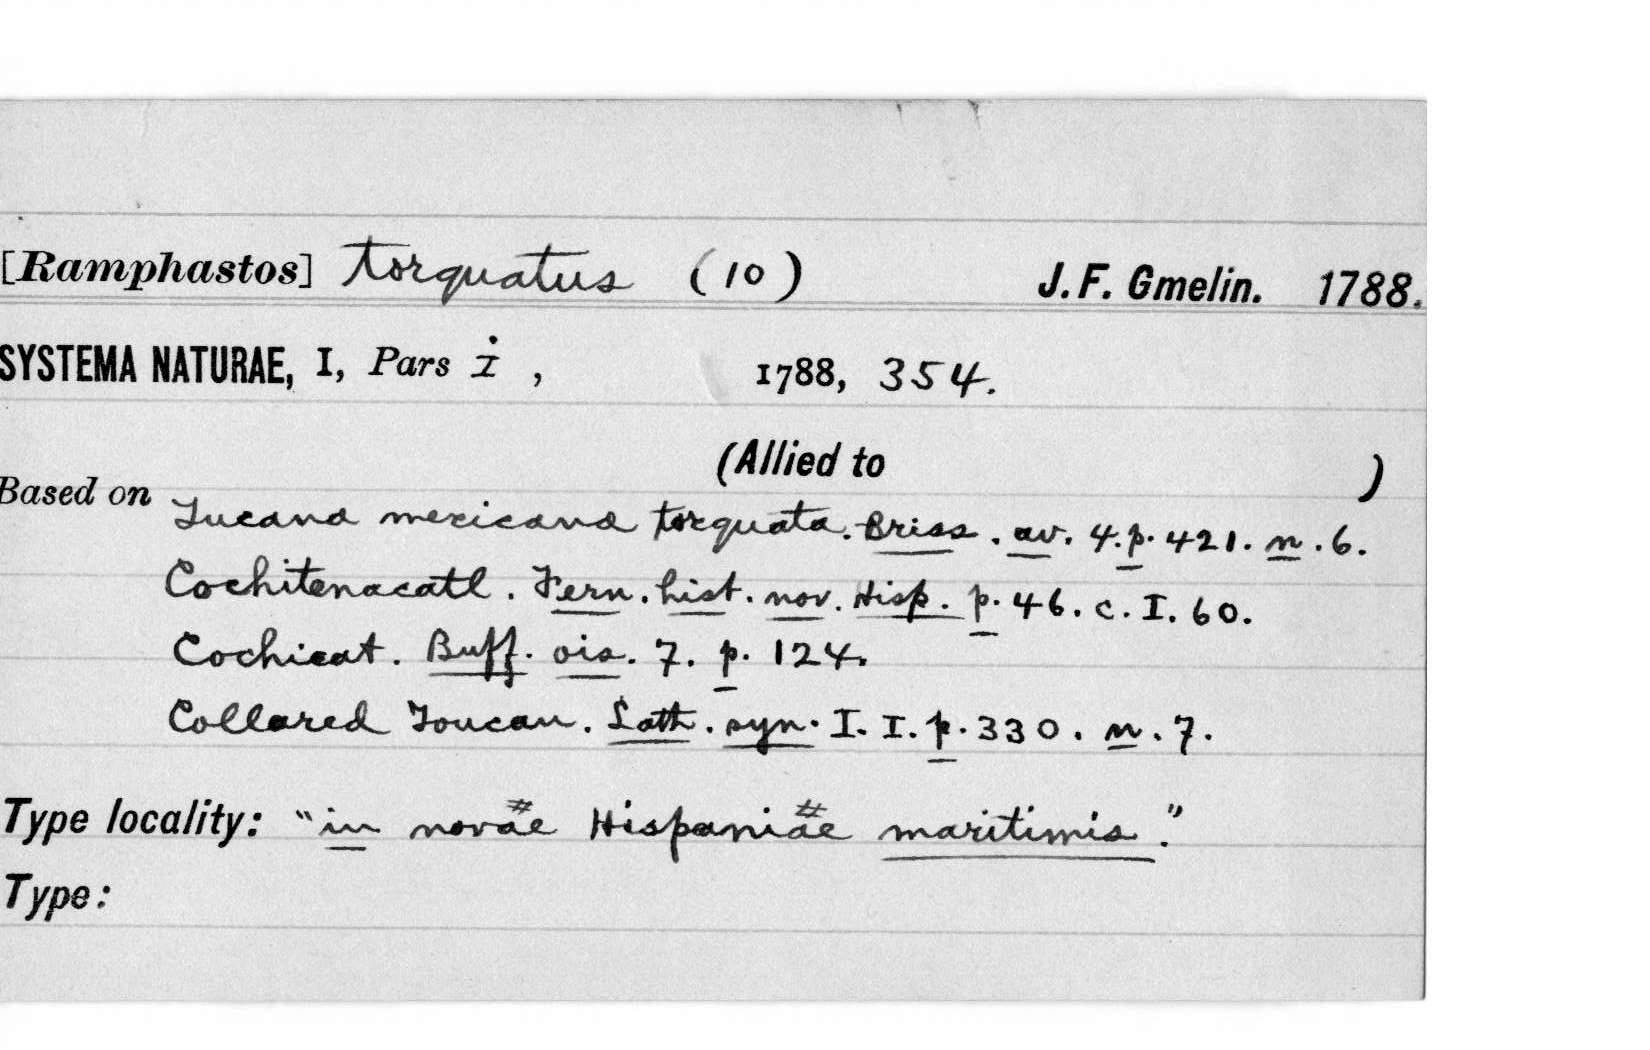 [Ramphastos] torquatus (10) J. F. Gmelin. 1788.
SYSTEMA NATURAE, I, Pars i , 1788, 354.
(Allied to )
Based on
Tucana mexicana torquata. Briss. av. 4. p. 421. n. 6.
Cochitenacatl. Fern. hist. nov. Hisp. p. 46. c. I. 60.
Cochicat. Buff. ois. 7. p. 124.
Collared Toucan. Lath. syn. I. I. p. 330. n. 7.
Type locality: "in novae # Hispaniae # maritimis."
Type: